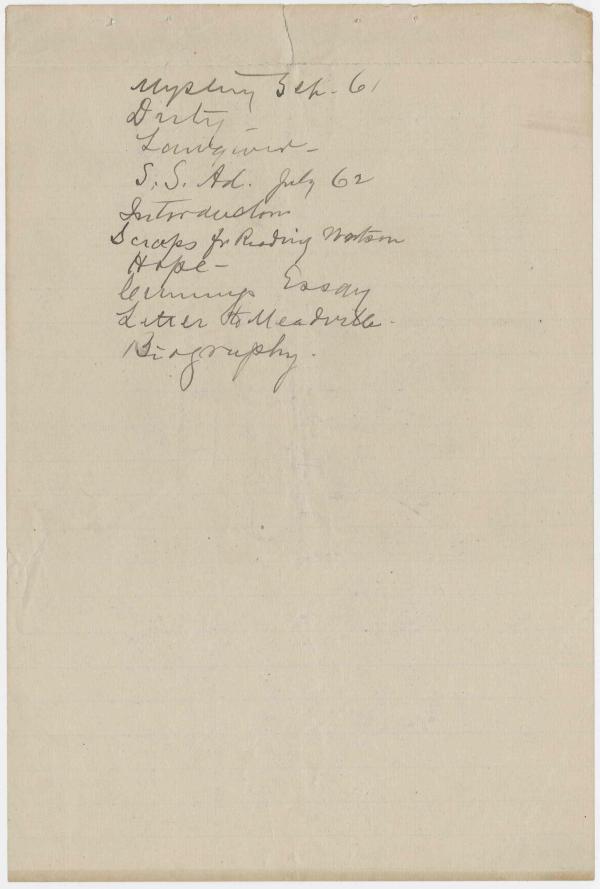 Mystery Sep. 61
Duty
Lawgiver -
S. S. Ad. July 62
Introduction
Scraps for Reading Watson
Hope -
Essay
Letter to Meadville.
Biography.